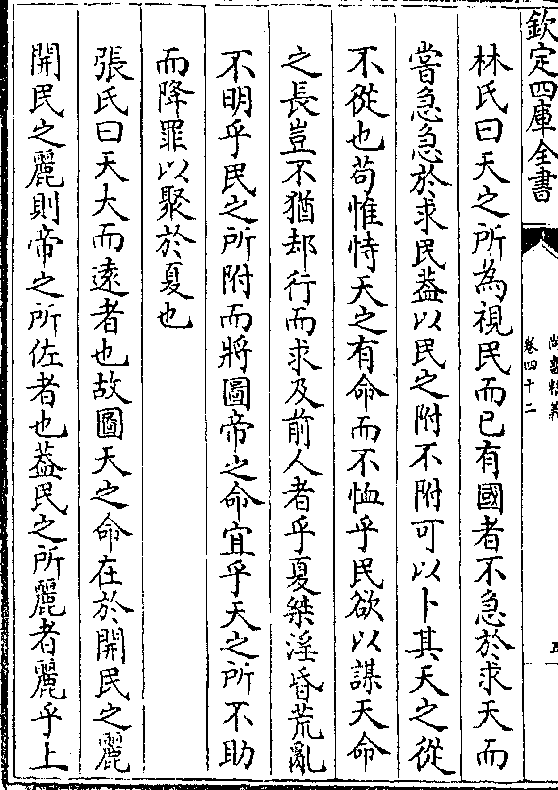 欽定四庫全書
尚書精義
卷四十二
五
林氏曰天之所為視民而已有國者不急於求天而
當急急於求民葢以民之附不附可以卜其天之從
不從也苟惟恃天之有命而不恤乎民欲以謀天命
之長豈不猶却行而求及前人者乎夏桀淫昏荒亂
不明乎民之所附而將圖帝之命宜乎天之所不助
而降罪以聚於夏也
張氏曰天大而遠者也故圖天之命在於開民之麗
開民之麗則帝之所佐者也葢民之所麗者麗乎上